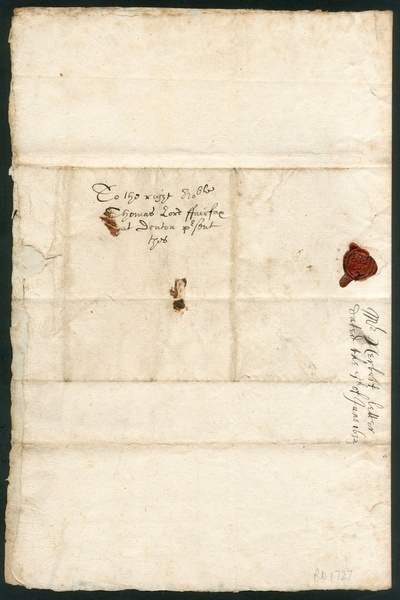 To the right Noble
Thomas Lord ffairfax
at Denton present
thes
Mr Herbert letter
dated the of June 165
RD 1727